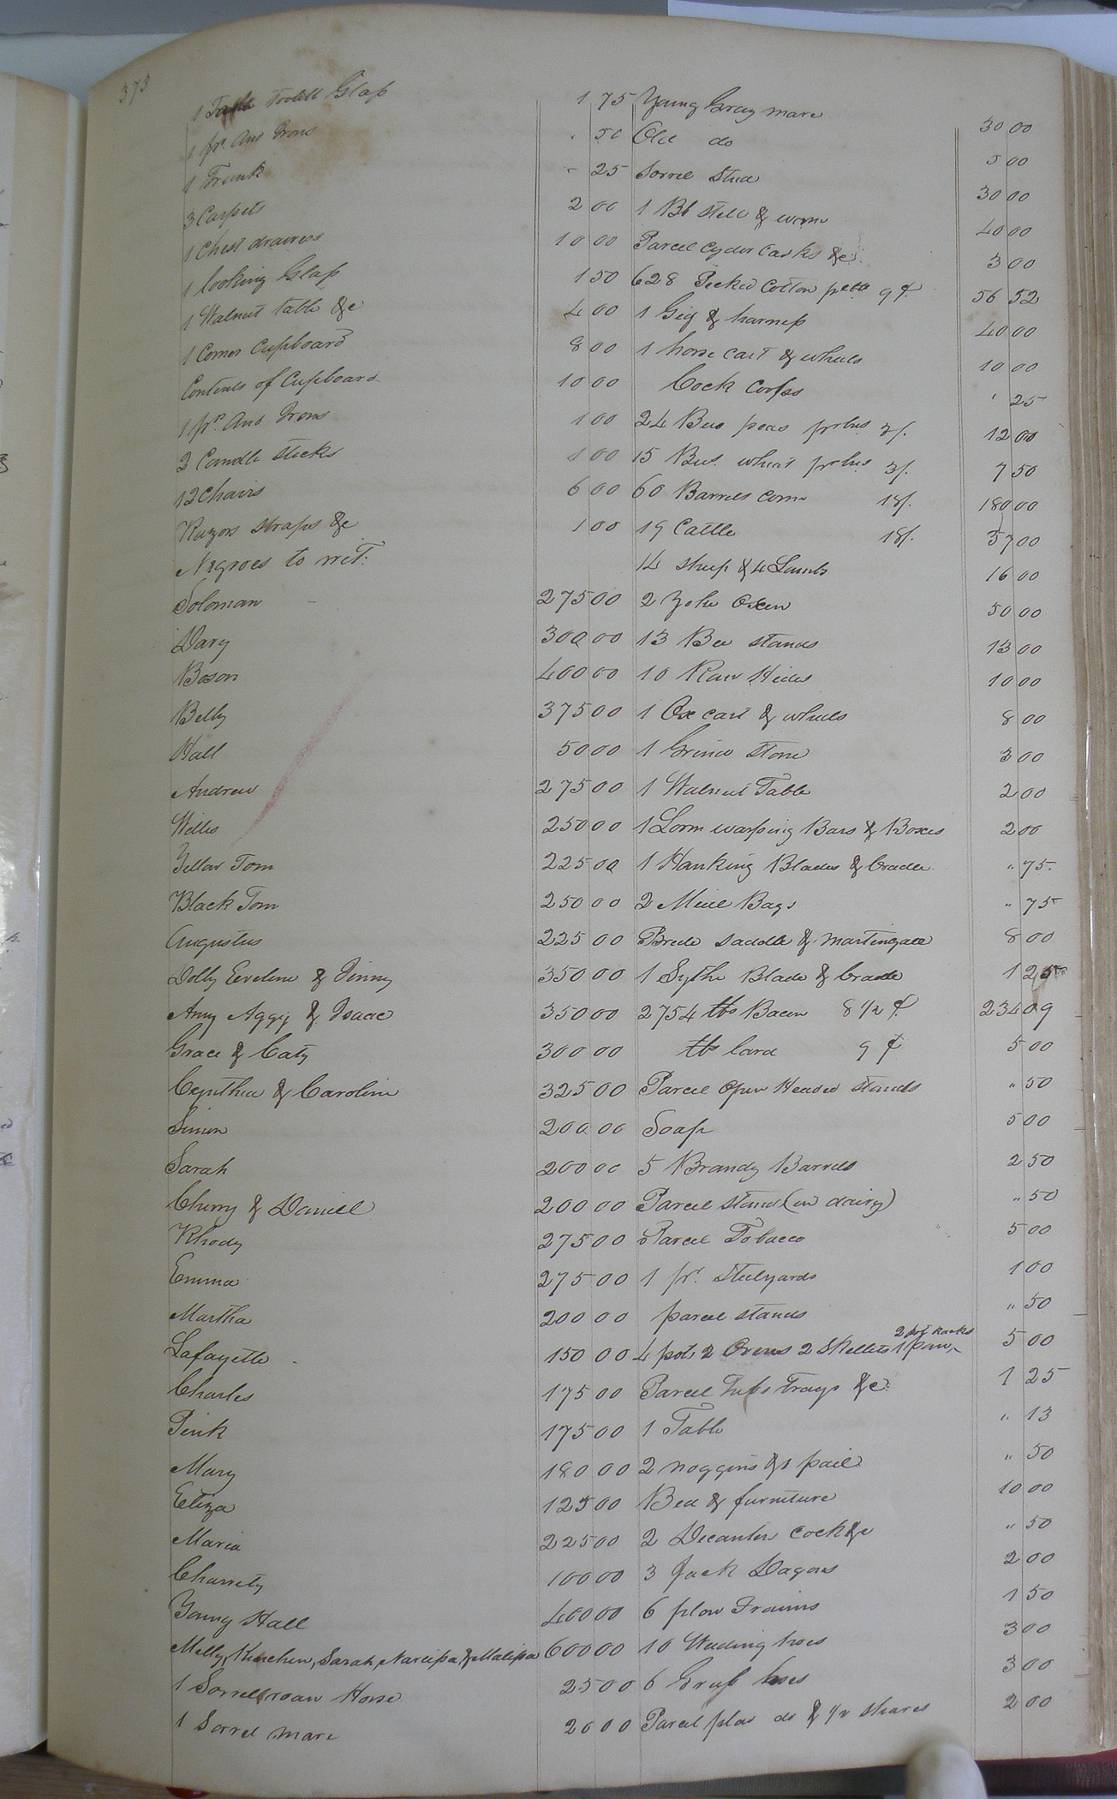 373
1 Table Toilett Glass 1 75
1 pr. And Irons . 50
1 Trunk - 25
3 Carpets 2 00
1 Chest drawers 10 00
1 looking Glass 1 50
1 Walnut table &c 4 00
1 Corner Cupboard 8 00
Contents of Cupboard 10 00
1 pr. And Irons 1 00
3 Candle sticks 1 00
12 Chairs 6 00
Razors straps &c 1 00
Negroes to wit:
Soloman 275 00
Davy 300 00
Boson 400 00
Betty 375 00
Hall 50 00
Andrew 275 00
Willis 250 00
Yellow Tom 225 00
Black Tom 250 00
Augustus 225 00
Dolly Eveline & Jinny 350 00
Amy Aggy & Isaac 350 00
Grace & Caty 300 00
Cynthia & Caroline 325 00
Simon 200 00
Sarah 200 00
Cherry & Daniel 200 00
Rhody 275 00
Emma 275 00
Martha 200 00
Lafayette 150 00
Charles 175 00
Pink 175 00
Mary 180 00
Eliza 125 00
Maria 225 00
Charrity 100 00
Young Hall 400 00
Milly, Kitchen, Sarah, Narcissa, & Malissa 600 00
1 Sorrel roan Horse 25 00
1 Sorrel mare 20 00
Young Gray mare 30 00
Old do 5 00
Sorrel Stud 30 00
1 Bb Still & worm 40 00
Parcel Cyder Casks &c. 3 00
628 Picked Cotton 9 ¢ 56 52
1 Gig & harness 40 00
1 horse cart & wheels 10 00
Cock 25
24 Bus peas pr bus 3/. 12 00
15 Bus. wheat pr bus 3/. 7 50
60 Barrels corn 18/. 180 00
19 Cattle 18/. 57 00
14 sheep & 4 Lambs 16 00
2 Yoke Oxen 50 00
13 Bee stands 13 00
10 Raw Hides 10 00
1 Ox cart & wheels 8 00
1 Grind stone 3 00
1 Walnut Table 2 00
1 Loom warping Bars & Boxes 2 00
1 Hanking Blades & Cradle " 75
2 Meal Bags " 75
saddle & martingale 8 00
1 Sythe Blade & Cradle 1 25
2754 lbs Bacon 8 1/2 ¢ 234 09
lbs lard 9 ¢ 5 00
Parcel Open Headed stands " 50
Soap 5 00
5 Brandy Barrels 2 50
Parcel stands (in dairy) " 50
Parcel Tobacco 5 00
1 pr. Steelyards 1 00
parcel stands " 50
4 pots 2 Ovens 2 Skillets 1 pan, 2 pot racks 5 00
Parcel Tubs trays &c. 1 25
1 Table " 13
2 noggins & 1 pail " 50
Bed & furniture 10 00
2 Decanters cock &c " 50
3 Jack Dagons 2 00
6 plow Frames 1 50
10 Weeding hoes 3 00
6 Grub hoes 3 00
Parcel plow do & 1/2 shares 2 00